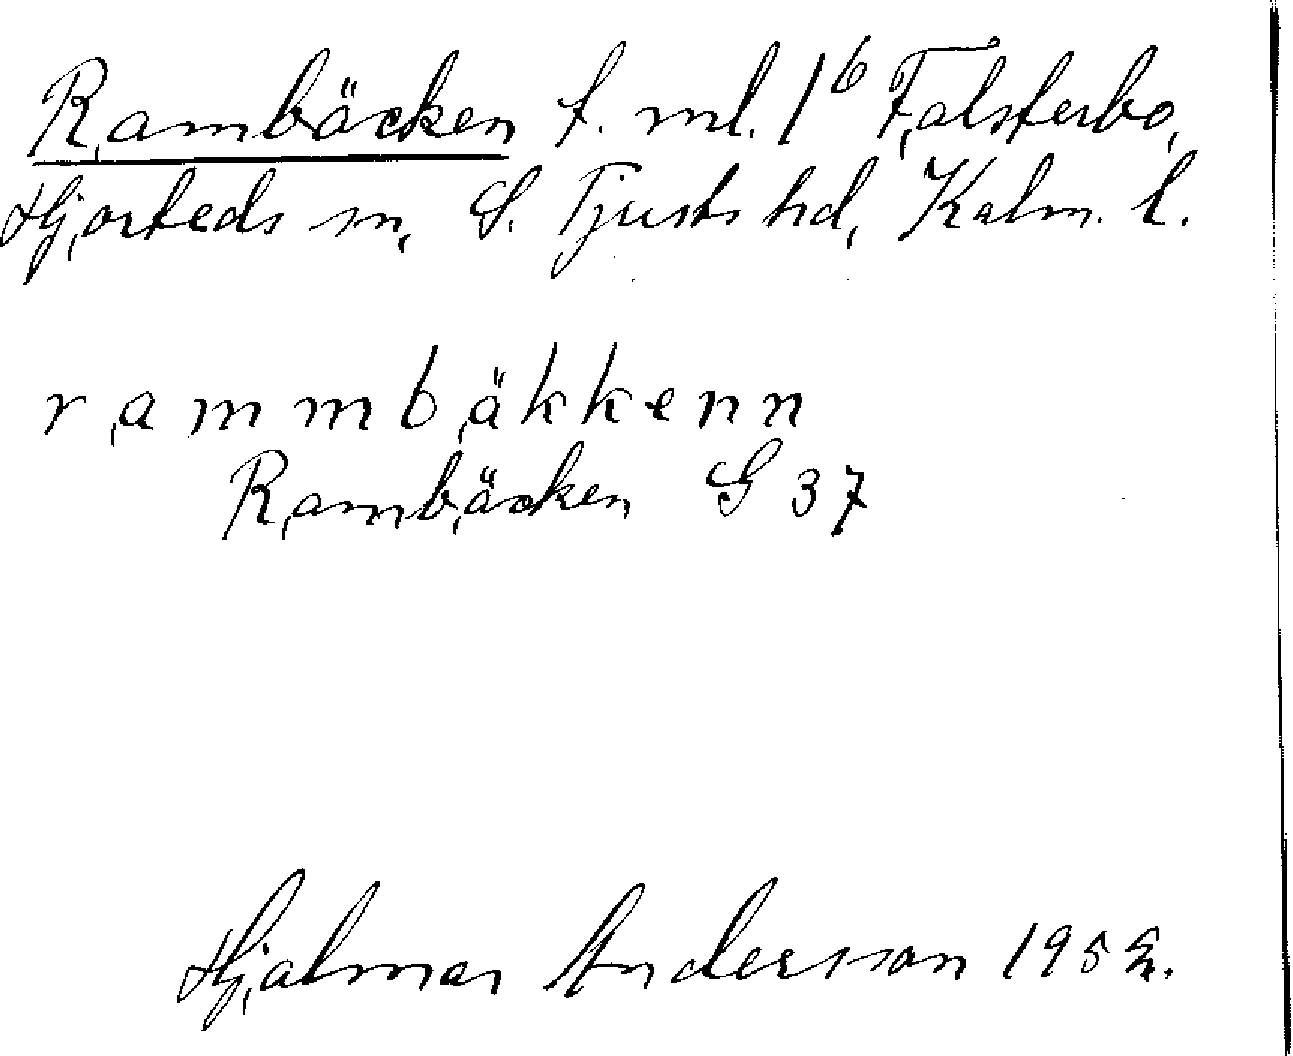 Rambäcken t. ml. 1⁶ Falsterbo,
Hjorteds sn, S. Tjusts hd, Kalm. l.
r ͵a m m b ͵ä k k e n n
R͵amb͵äcken G 37
Hjalmar Andersson 1952.